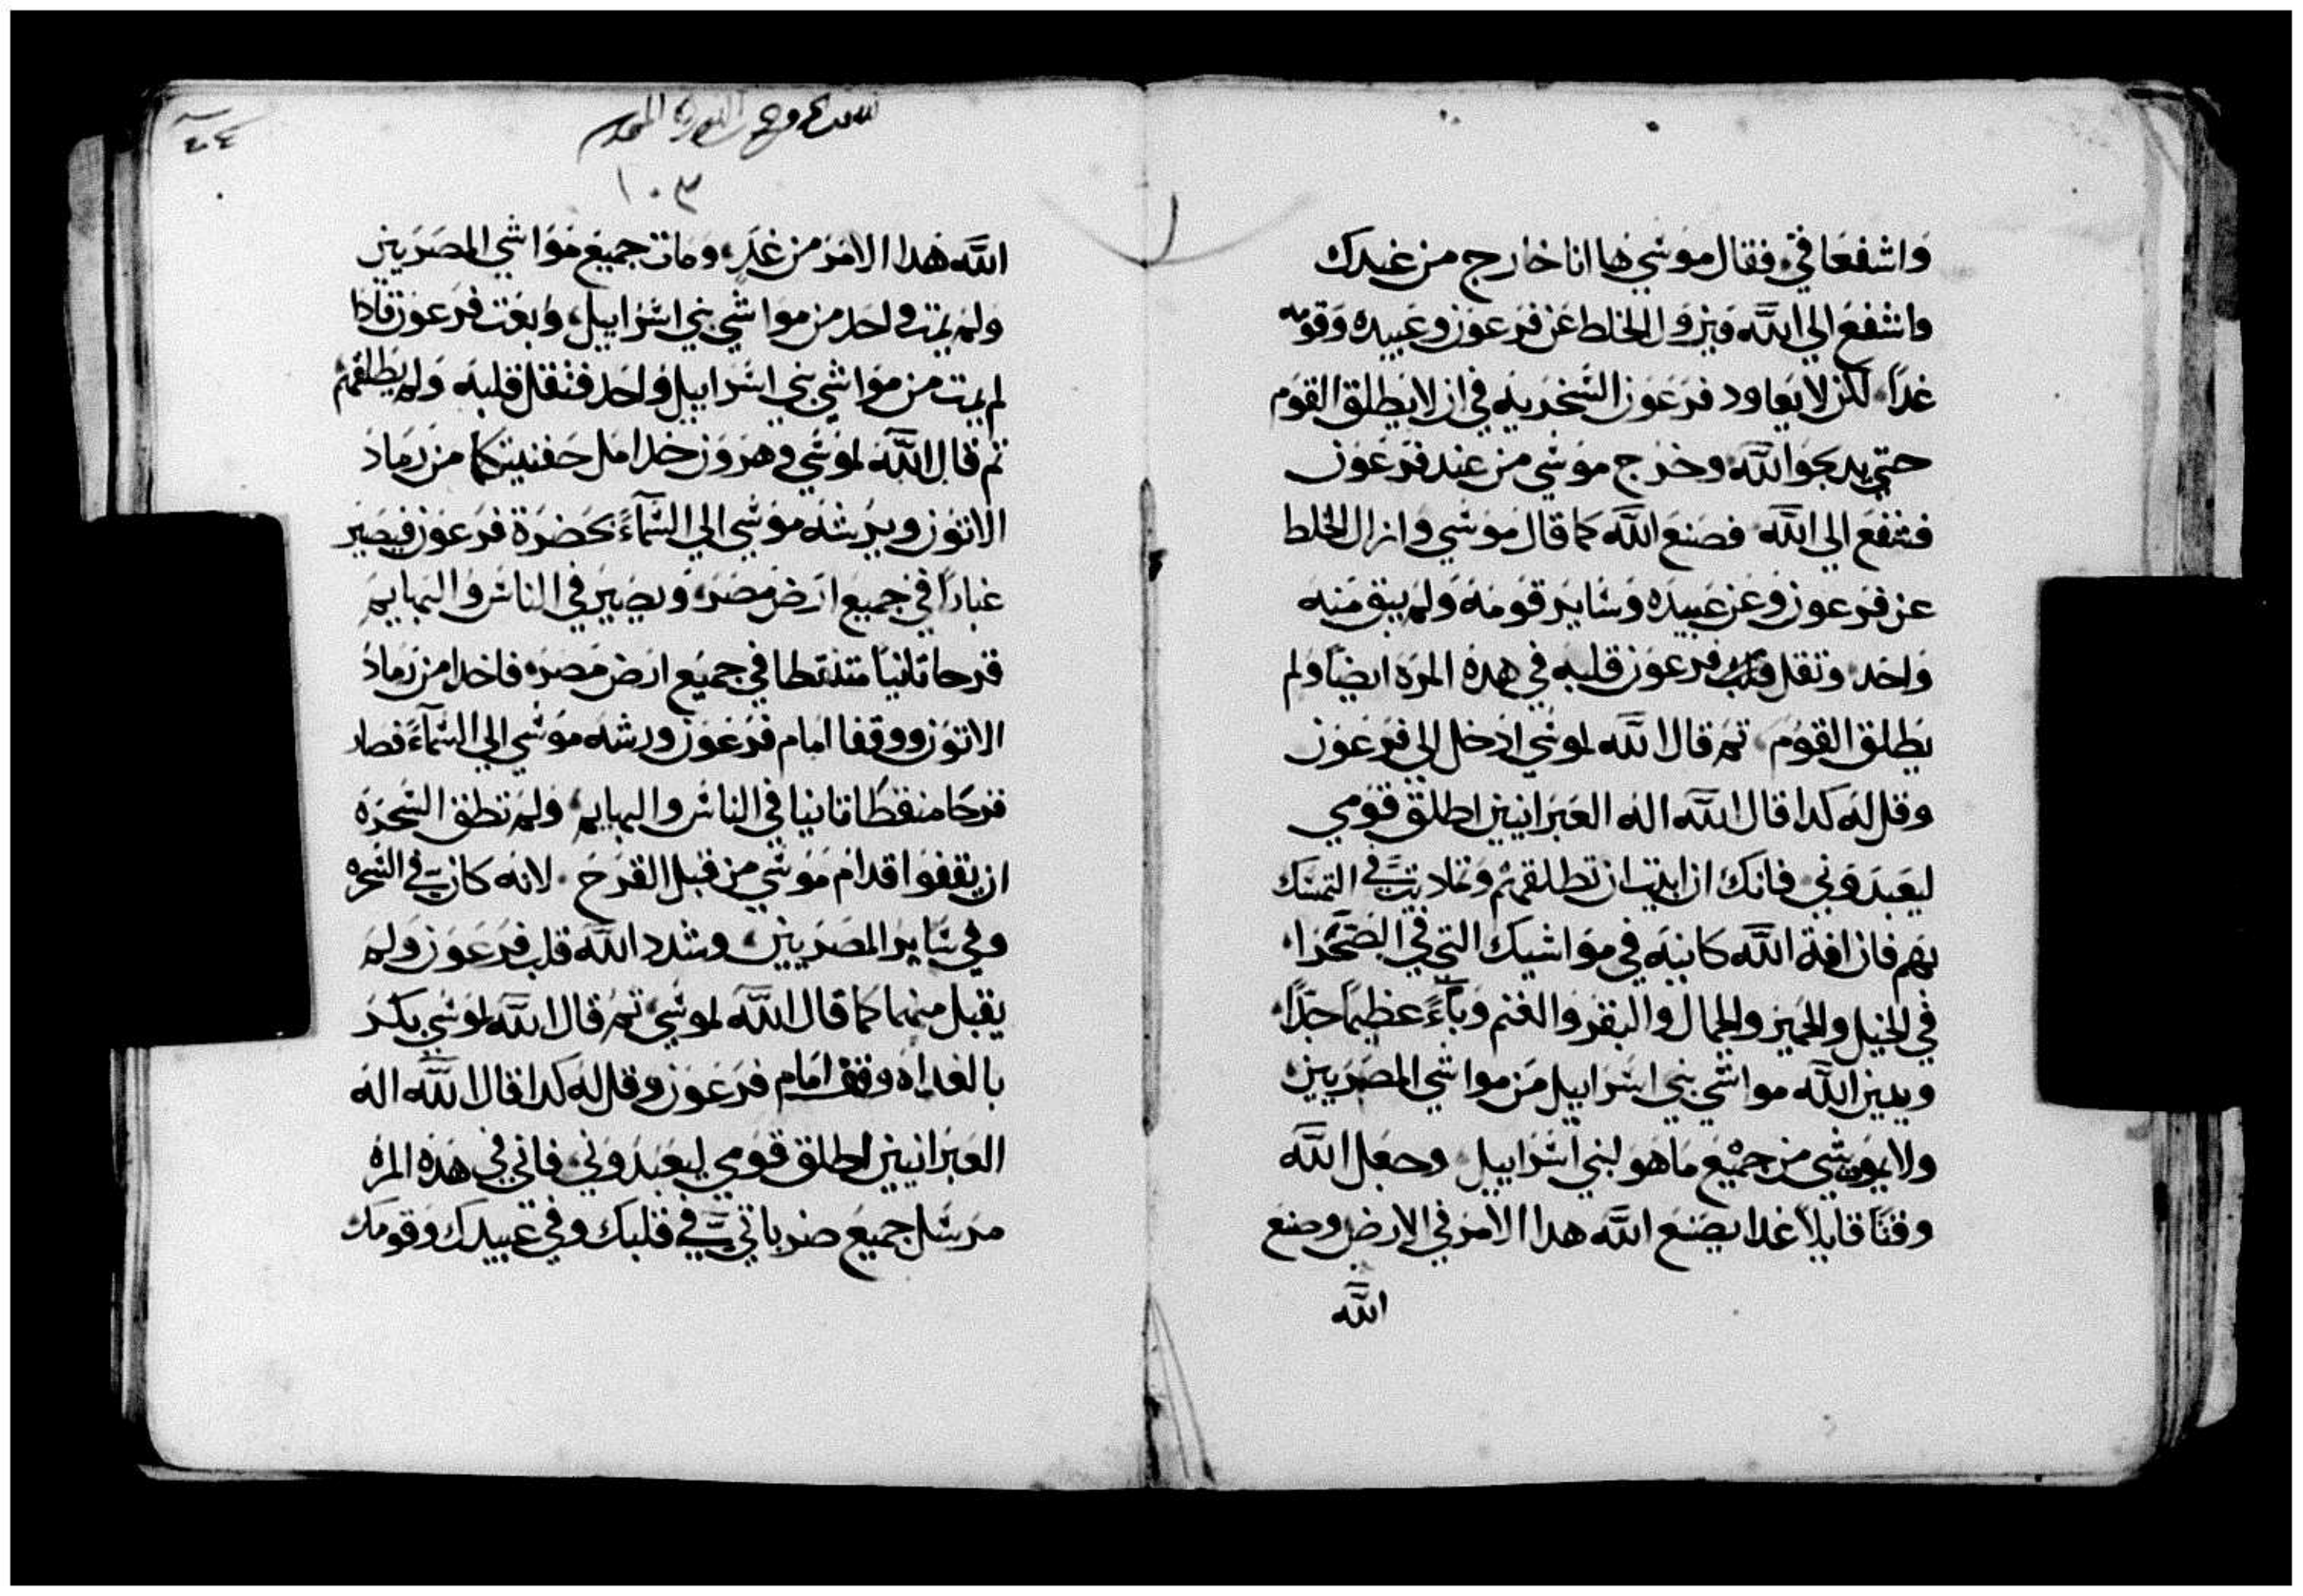 واشفعا في فقال موسي ها انا خارج من عندك
واشفع الي الله فيزول الخلط عن فرعون وعبيده وقومه
غداً لكن لا يعاود فرعون السخريه في ان لا يطلق القوم
حتي يدبحوا لله وخرج موسي من عند فرعون
فشفع الي الله فصنع الله كما قال موسي وازال الخلط
عن فرعون وعن عبيده وساير قومه ولم يبق منه
واحد وتقل فرعون قلبه في هده المره ايضاً ولم
يطلق القوم تم قال الله لموسي ادخل الي فرعون
وقل له كدا قال الله اله العبرانيين اطلق قومي
ليعبدوني فانك ان ابيت ان تطلقهم وتماديت في التمسك
بهم فان افة الله كاينه في مواشيك التي في الصحرا
في الخيل والحمير والجمال والبقر والغنم وبآءً عظيماً جداً
ويميز الله مواشي بني اسراييل من مواشي المصريين
ولا يموت شي من جميع ما هو لبني اسراييل وجعل الله
وقتاً قايلاً غدا يصنع الله هدا الامر في الارض وصنع
الله
١٠٣
الله هدا الامر من غدٍ ومات جميع مواشي المصريين
ولم يمت واحد من مواشي بني اسراييل وبعت فرعون فادا
لم يمت من مواشي بني اسراييل واحد فثقل قلبه ولم يطلقهم
تم قال الله لموسي وهرون خدا مل حفنيتكما من رماد
الاتون ويرشه موسي الي السمآء بحضرة فرعون فيصير
غباراً في جميع ارض مصر ويصير في الناس والبهايم
قرحا متنفطا في جميع ارض مصر فاخدا من رماد
الاتون ووقفا امام فرعون ورشه موسي الي السمآء فصار
قرحا منفطا في الناس والبهايم ولم تطق السحرة
ان يقفوا قدام موسي من قبل القرح لانه كان في السحره
وفي ساير المصريين وشدد الله قلب فرعون ولم
يقبل منهما كما قال الله لموسي تم قال الله لموسي بكر
بالغداه وقف امام فرعون وقل له كدا قال الله اله
العبرانيين اطلق قومي ليعبدوني فاني في هده المره
مرسل جميع ضرباتي في قلبك وفي عبيدك وقومك